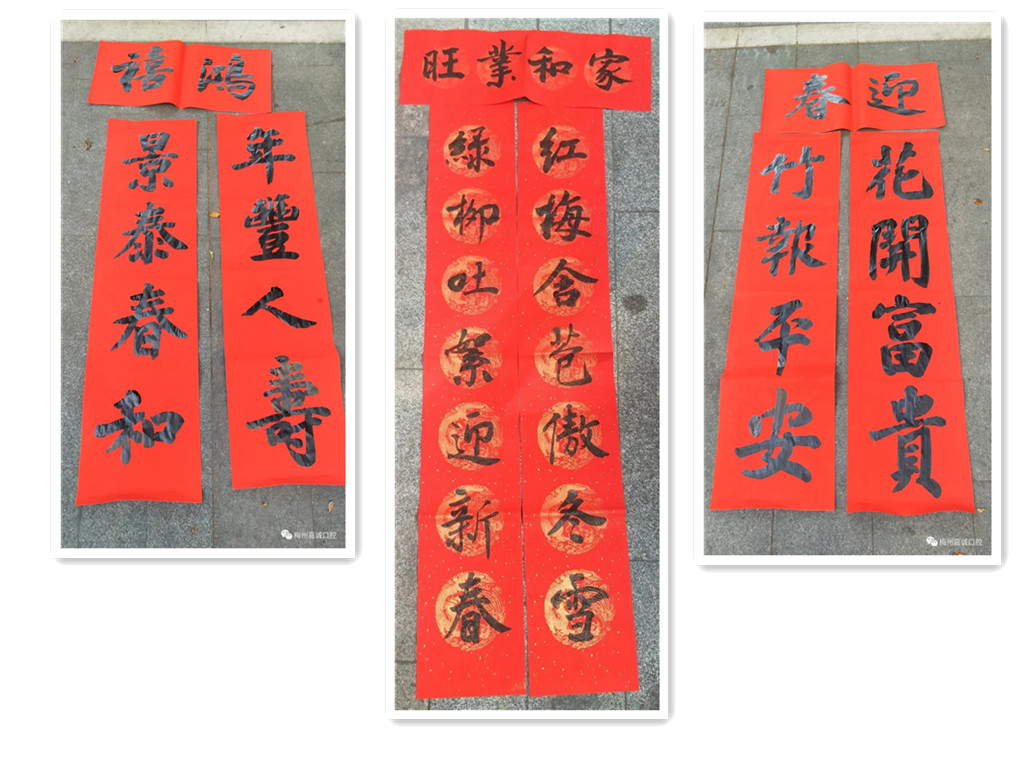 鴻禧
年豐人壽
景泰春和
梅州嘉诚口腔
家和業旺
紅梅含苞傲冬雪
綠柳吐絮迎新春
迎春
花開富貴
竹報平安
梅州嘉诚口腔